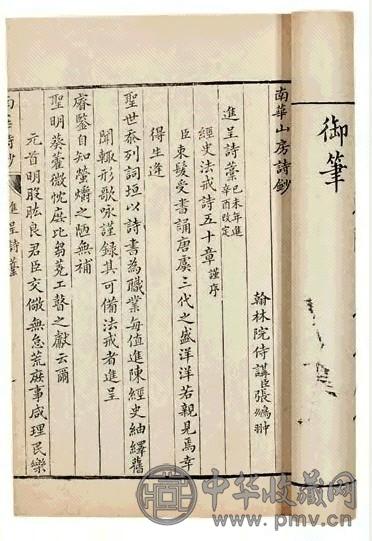 御筆
南華山房詩鈔
翰林院侍講臣張鵬翀
進呈詩藁 己未年進 辛酉改定
經史法戒詩五十章 謹序
臣束髮受書誦唐虞三代之盛洋洋若親見焉幸
得生逢
聖世忝列詞垣以詩書為職業每值進陳經史紬繹舊
聞輒形歌咏謹録其可備法戒者進呈
睿鑒自知螢爝之陋無補
聖明葵藿微忱庶比芻蕘工瞽之獻云爾
元首明股肱良君臣交儆無怠荒庶事咸理民樂
南華詩鈔 進呈詩藁
中华收藏网
www.pmv.cn